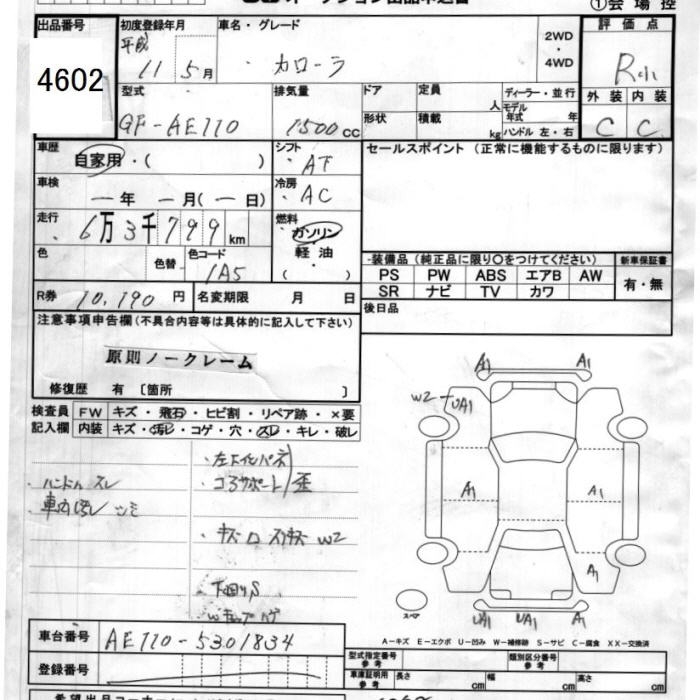 ①会場控
出品番号
4602
初度登録年月
平成
11 5月
車名・グレード
カローラ
2WD
・
4WD
評価点
外装 内装
C C
型式
GF-AE110
排気量
1500cc
ドア
形状
定員
人
積載
kg
ディーラー・並行
モデル
年式 年
ハンドル 左・右
車歴
自家用・( )
シフト
AT
セールスポイント (正常に機能するものに限ります)
車検
ー年 ー月(ー日)
冷房
AC
走行
6万3千799km
燃料
ガソリン
軽油
( )
色
色替
色コード
1A5
装備品 (純正品に限り○をつけてください)
新車保証書
PS PW ABS エアB AW
SR ナビ TV カワ
有・無
R券 10,190円
名変期限 月 日
後日品
注意事項申告欄(不具合内容等は具体的に記入して下さい)
原則ノークレーム
修復歴 有〔箇所 〕
検査員
記入欄
FW キズ・飛石・ヒビ割・リペア跡・×要
内装 キズ・汚レ・コゲ・穴・スレ・キレ・破レ
ハンドルスレ
コアサポート
歪
W2
A1
A1
W2
UA1
A1
A1
A1
UA1
UA1
A1
スペア
A-キズ E-エクボ U-凹み W-補修跡 S-サビ C-腐食 XX-交換済
車台番号
AE110-5301834
登録番号
型式指定番号
参考
類別区分番号
参考
車庫証明用
参考
長さ
cm
幅
cm
高さ
cm